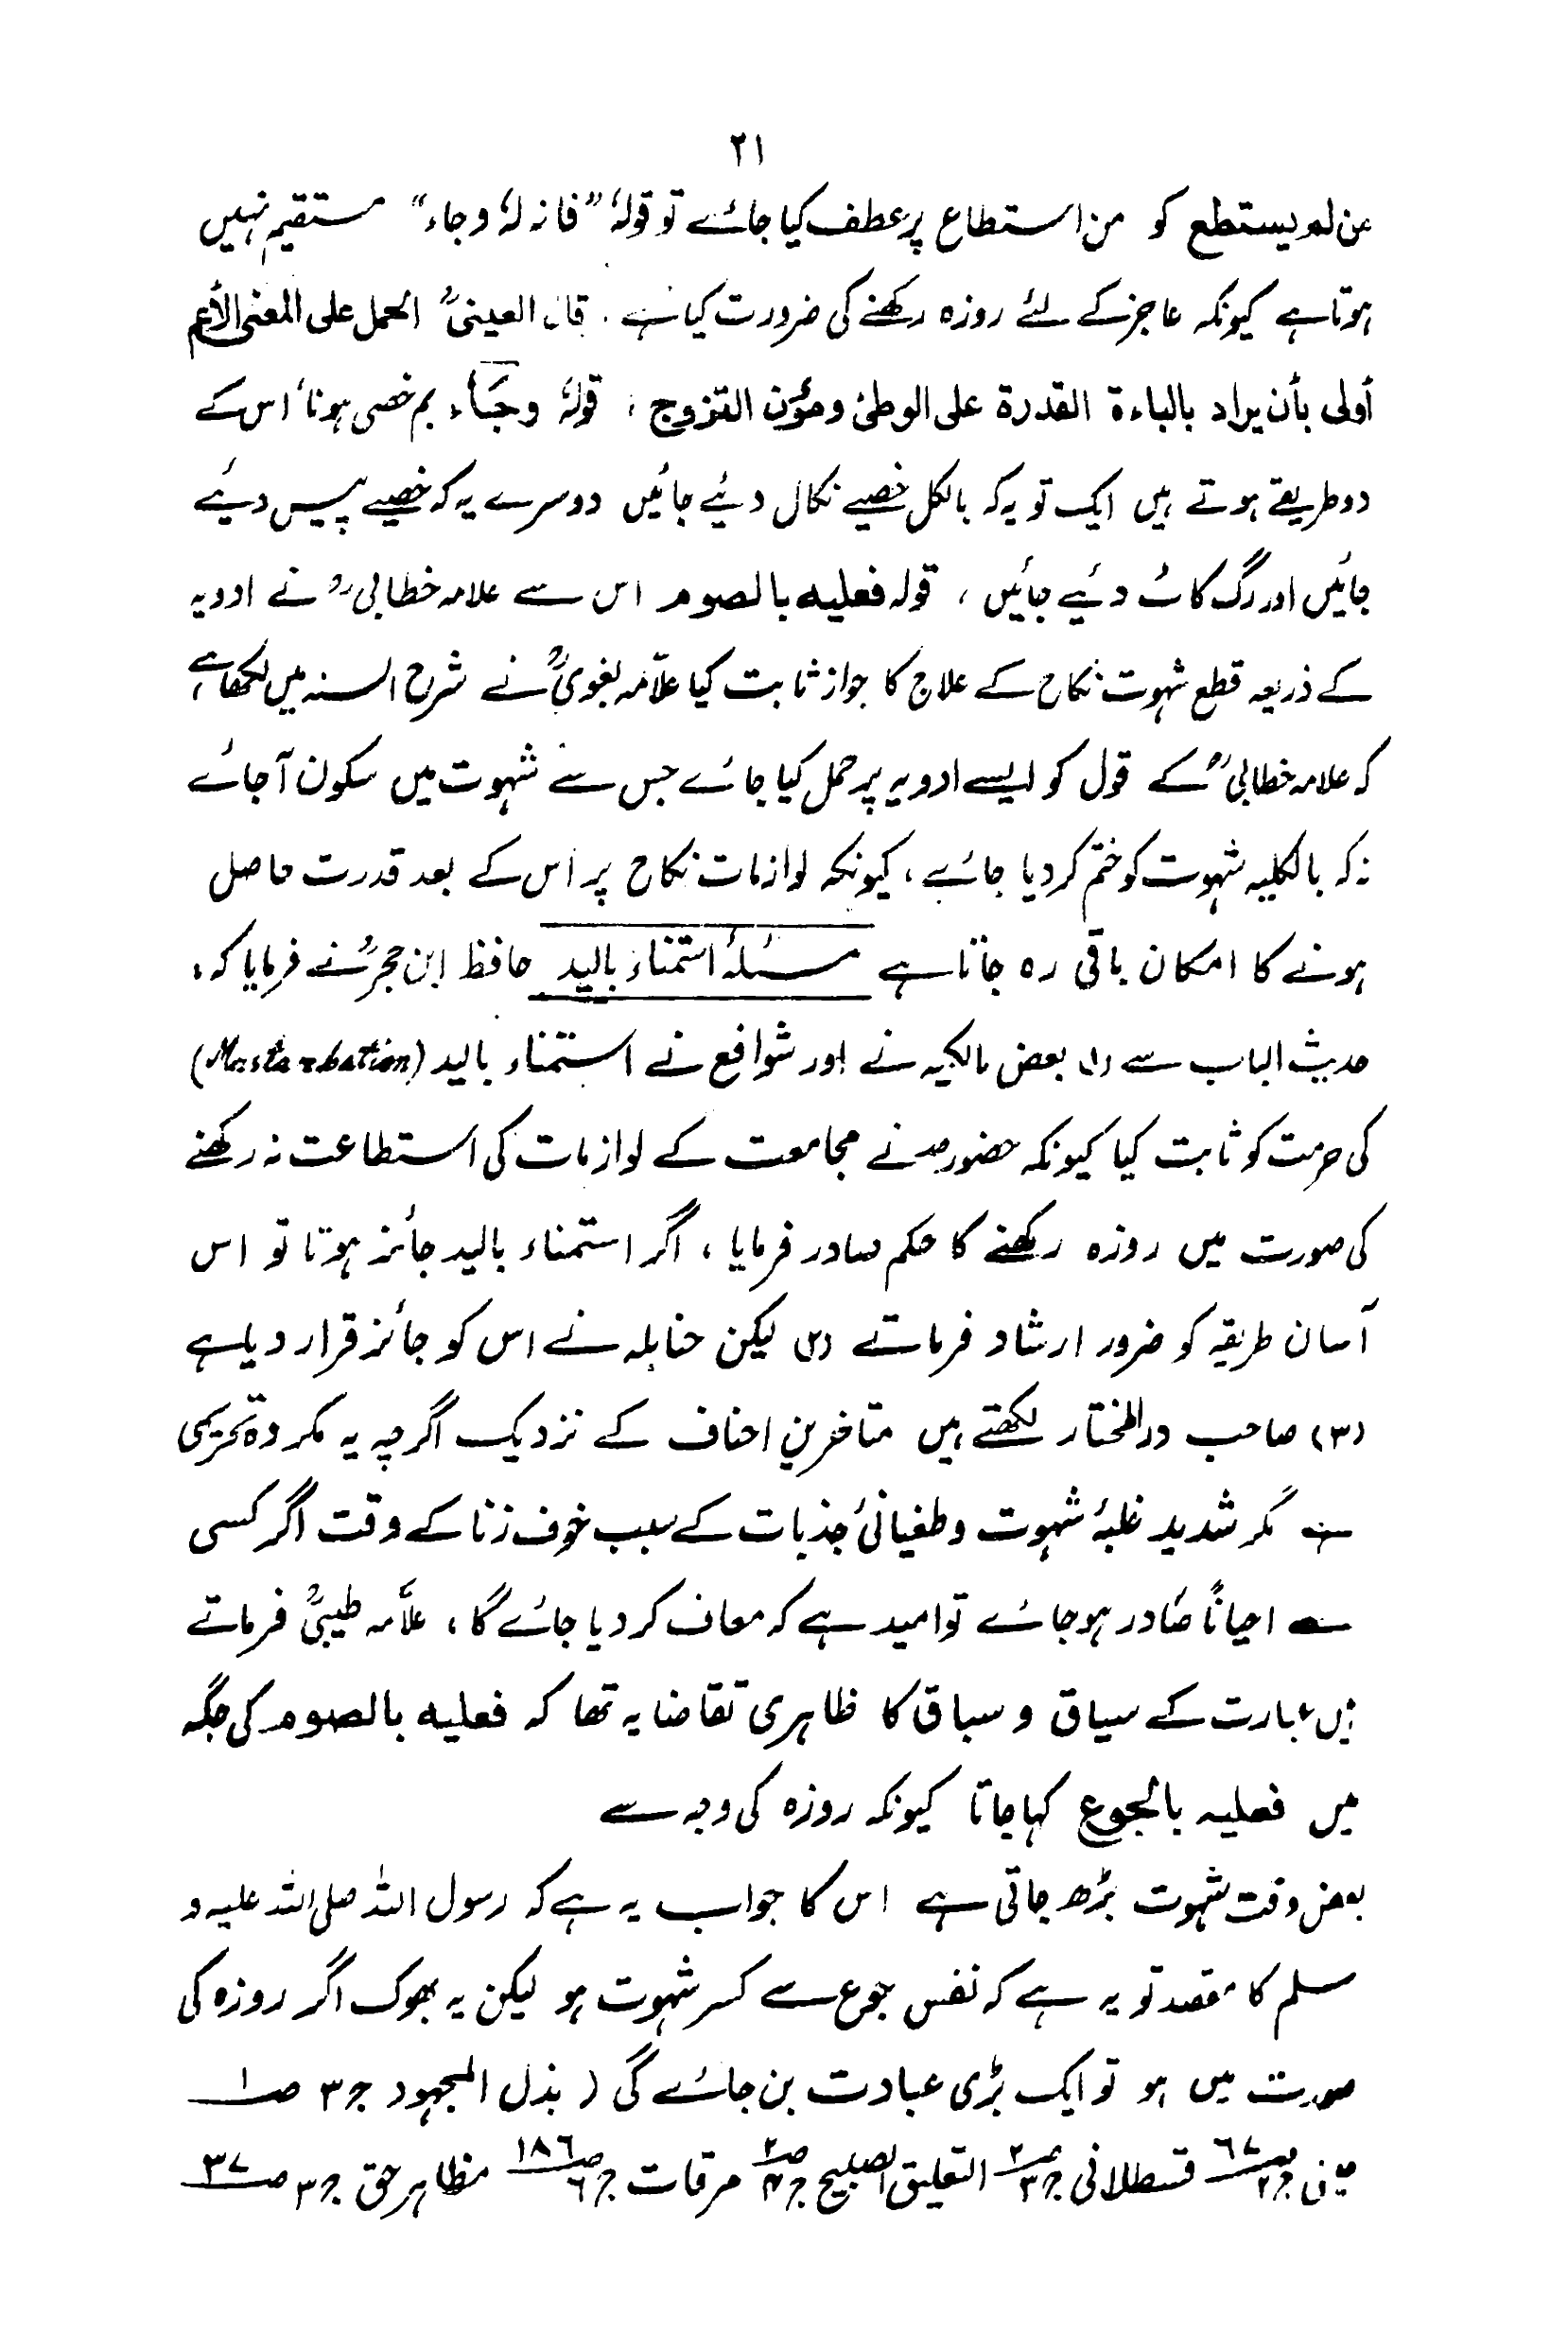 ۲۱
من لم يستطع کو من استطاع پر عطف کیا جائے تو قولہٗ "فانہ لہٗ وجاء" مستقیم نہیں
ہوتا ہے کیونکہ عاجز کے لئے روزہ رکھنے کی ضرورت کیا ہے . قال العینیؒ الحمل علی المعنی الأعم
أولى بأن يراد بالباءة القدرة على الوطئ ومؤن التزوج ، قولہٗ وِجَآء بم خصی ہونا، اس کے
دو طریقے ہوتے ہیں ایک تو یہ کہ بالکل خصیے نکال دئیے جائیں دوسرے یہ کہ خصیے پیس دیئے
جائیں اور رگ کاٹ دئیے جائیں ، قولہ فعليه بالصوم اس سے علامہ خطابیؒ نے ادویہ
کے ذریعہ قطع شہوت نکاح کے علاج کا جواز ثابت کیا علّامہ بغویؒ نے شرح السنہ میں لکھا ہے
کہ علامہ خطابیؒ کے قول کو ایسے ادویہ پر حمل کیا جائے جس سے شہوت میں سکون آجائے
نہ کہ بالکلیہ شہوت کو ختم کر دیا جائے ، کیونکہ لوازمات نکاح پر اس کے بعد قدرت حاصل
ہونے کا امکان باقی رہ جاتا ہے مسئلۂ استمناء بالید حافظ ابن حجرؒ نے فرمایا کہ :
حدیث الباب سے (۱) بعض مالکیہ نے اور شوافع نے استمناء بالید (Mastarbation)
کی حرمت کو ثابت کیا کیونکہ حضورؐ نے مجامعت کے لوازمات کی استطاعت نہ رکھنے
کی صورت میں روزہ رکھنے کا حکم صادر فرمایا ، اگر استمناء بالید جائز ہوتا تو اس
آسان طریقہ کو ضرور ارشاد فرماتے (۲) لیکن حنابلہ نے اس کو جائز قرار دیا ہے
(۳) صاحب درالمختار لکھتے ہیں متاخرین احناف کے نزدیک اگرچہ یہ مکروہ تحریمی
ہے مگر شدید غلبۂ شہوت و طغیانیٔ جذبات کے سبب خوف زنا کے وقت اگر کسی
سے احیاناً صادر ہو جائے تو امید ہے کہ معاف کر دیا جائے گا ، علّامہ طیبیؒ فرماتے
ہیں عبارت کے سیاق و سباق کا ظاہری تقاضا یہ تھا کہ فعليه بالصوم کی جگہ
میں فعليه بالجوع کہا جاتا کیونکہ روزہ کی وجہ سے
بعض وقت شہوت بڑھ جاتی ہے اس کا جواب یہ ہے کہ رسول اللہ صلی اللہ علیہ و
سلم کا مقصد تو یہ ہے کہ نفس جوع سے کسر شہوت ہو لیکن یہ بھوک اگر روزہ کی
صورت میں ہو تو ایک بڑی عبادت بن جائے گی ( بذل المجہود ج۳ ص۱
عینی ج۲ ص۶۷ قسطلانی ج۳ ص۲ التعلیق الصبیح ج۴ ص۲ مرقات ج۶ ص۱۸۶ مظاہر حق ج۳ ص۳۷